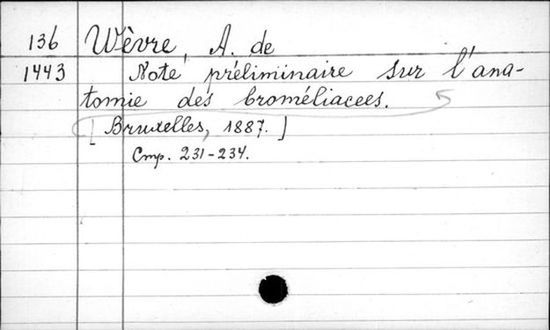 136 Wèvre, A. de
1443 Note préliminaire sur l'ana-
tomie des broméliacees.
[Bruxelles, 1887.]
Стр. 231-234.